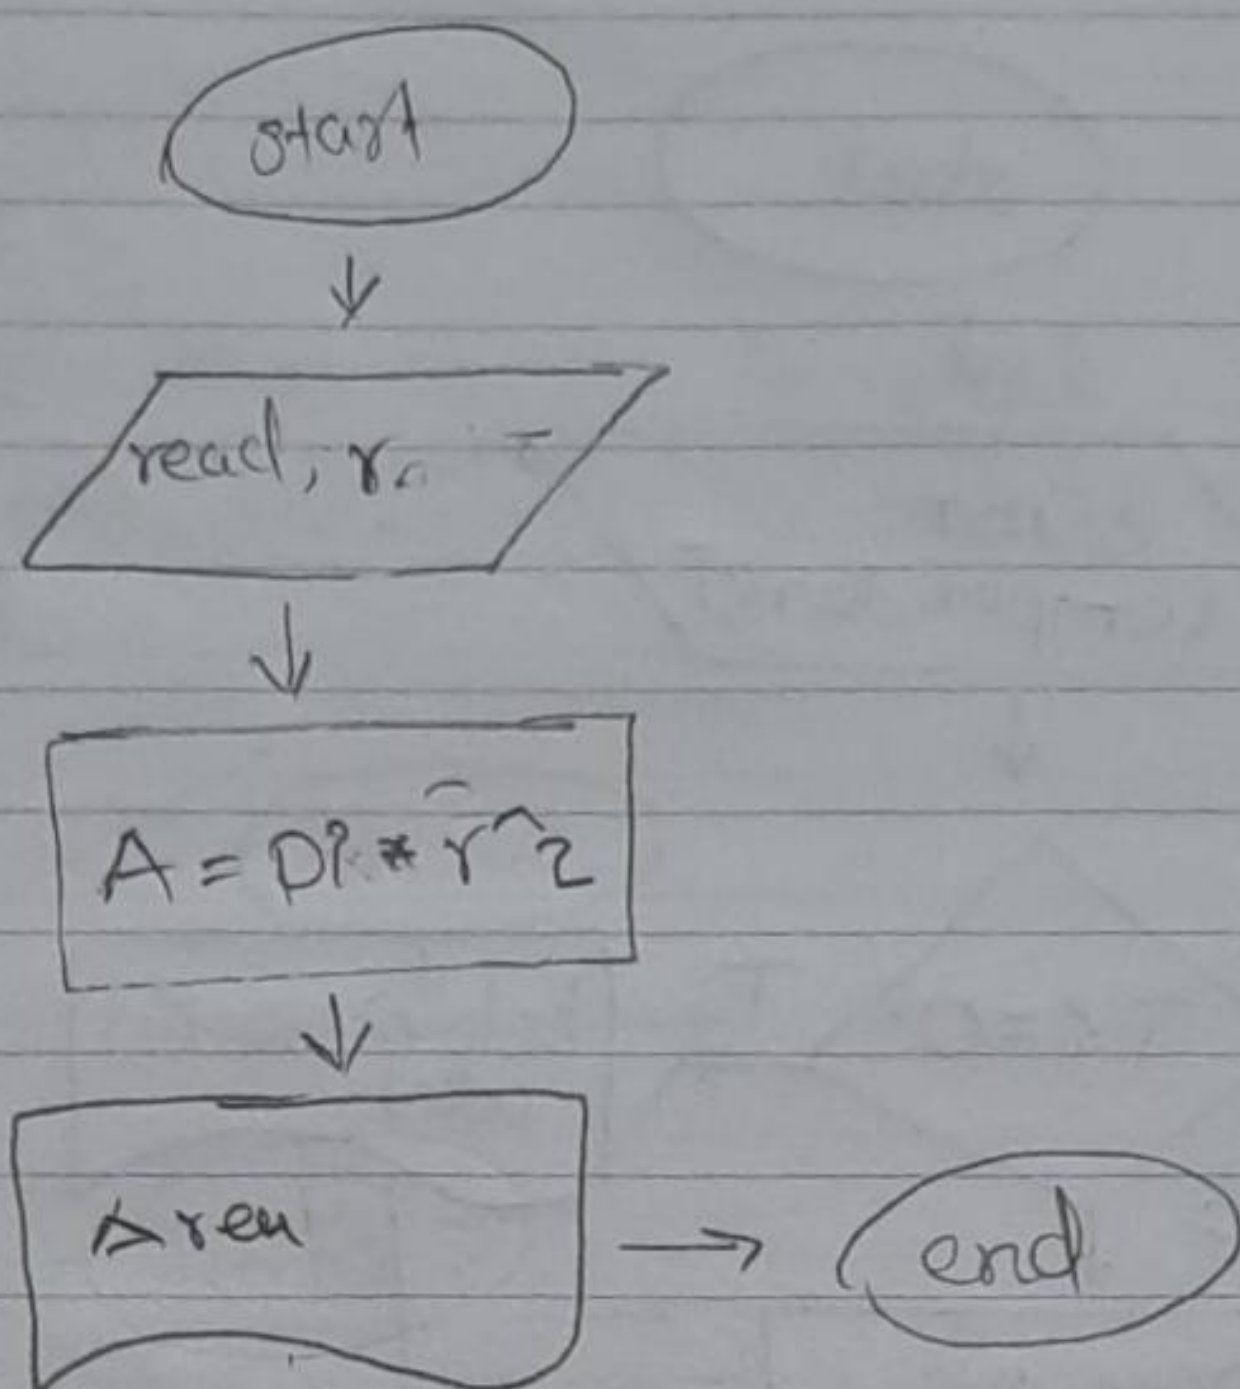 start
read, r.
A = pi * r^2
Area
end